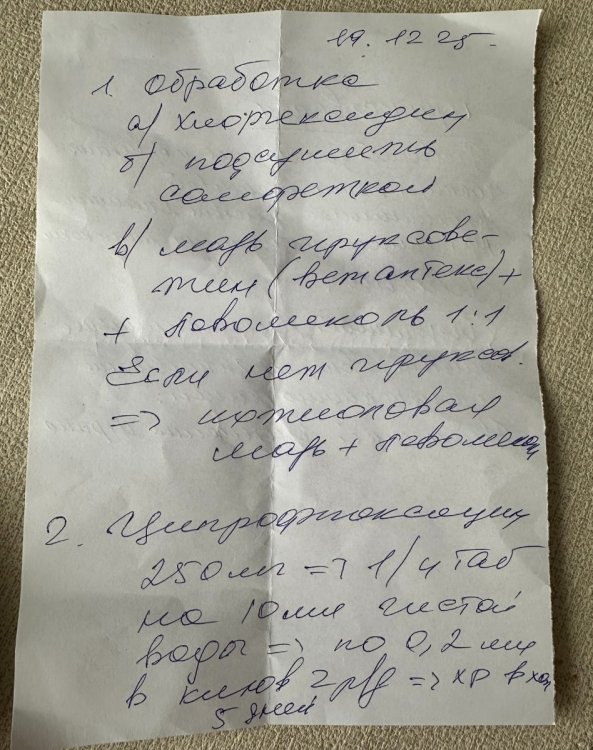 19.12 25.
1. обработка
а) хлоргексидин
б) подсушить
салфеткой
в) мазь ируксове-
тин (ветаптека) +
+ левомеколь 1:1
Если нет ируксов.
=> ихтиоловая
мазь + левомекол
2. Ципрофлоксацин
250 мг => 1/4 таб
на 10 мл чистой
воды => по 0,2 мл
в клюв 2р/д => хр в хол
5 дней